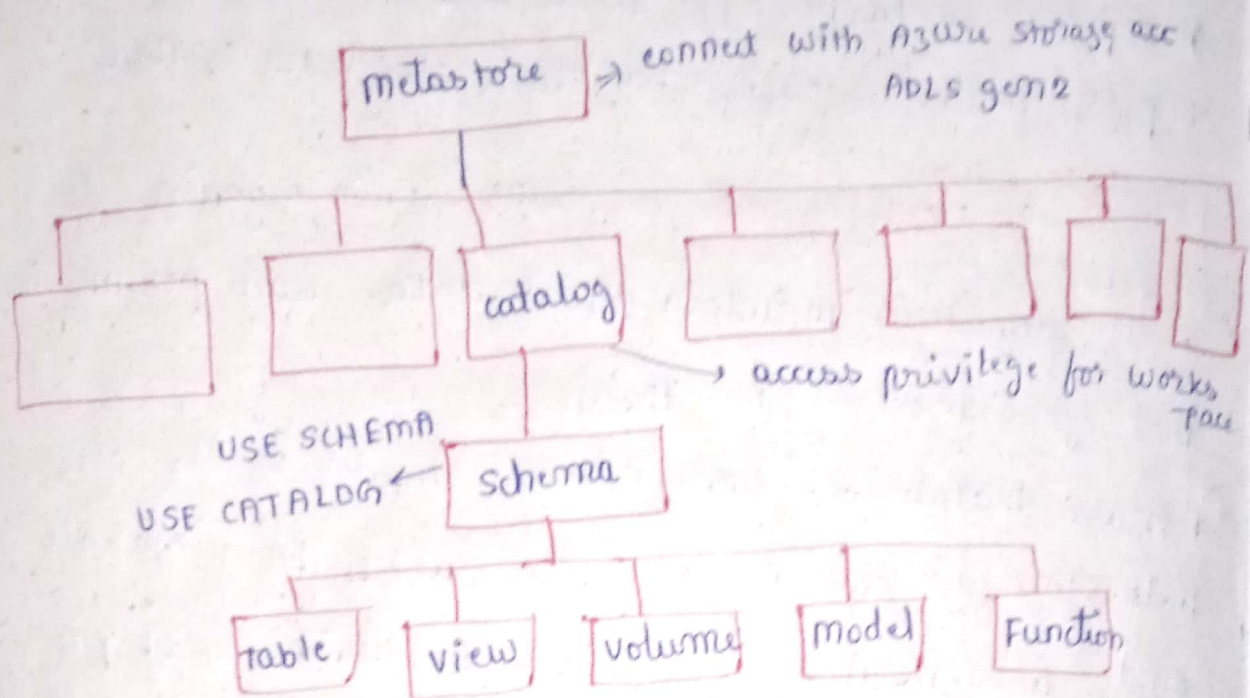 metastore → connect with Azure Storage acc
ADLS gen2
catalog
→ access privilege for works
-pace
USE SCHEMA
USE CATALOG ← schema
table view volume model Function